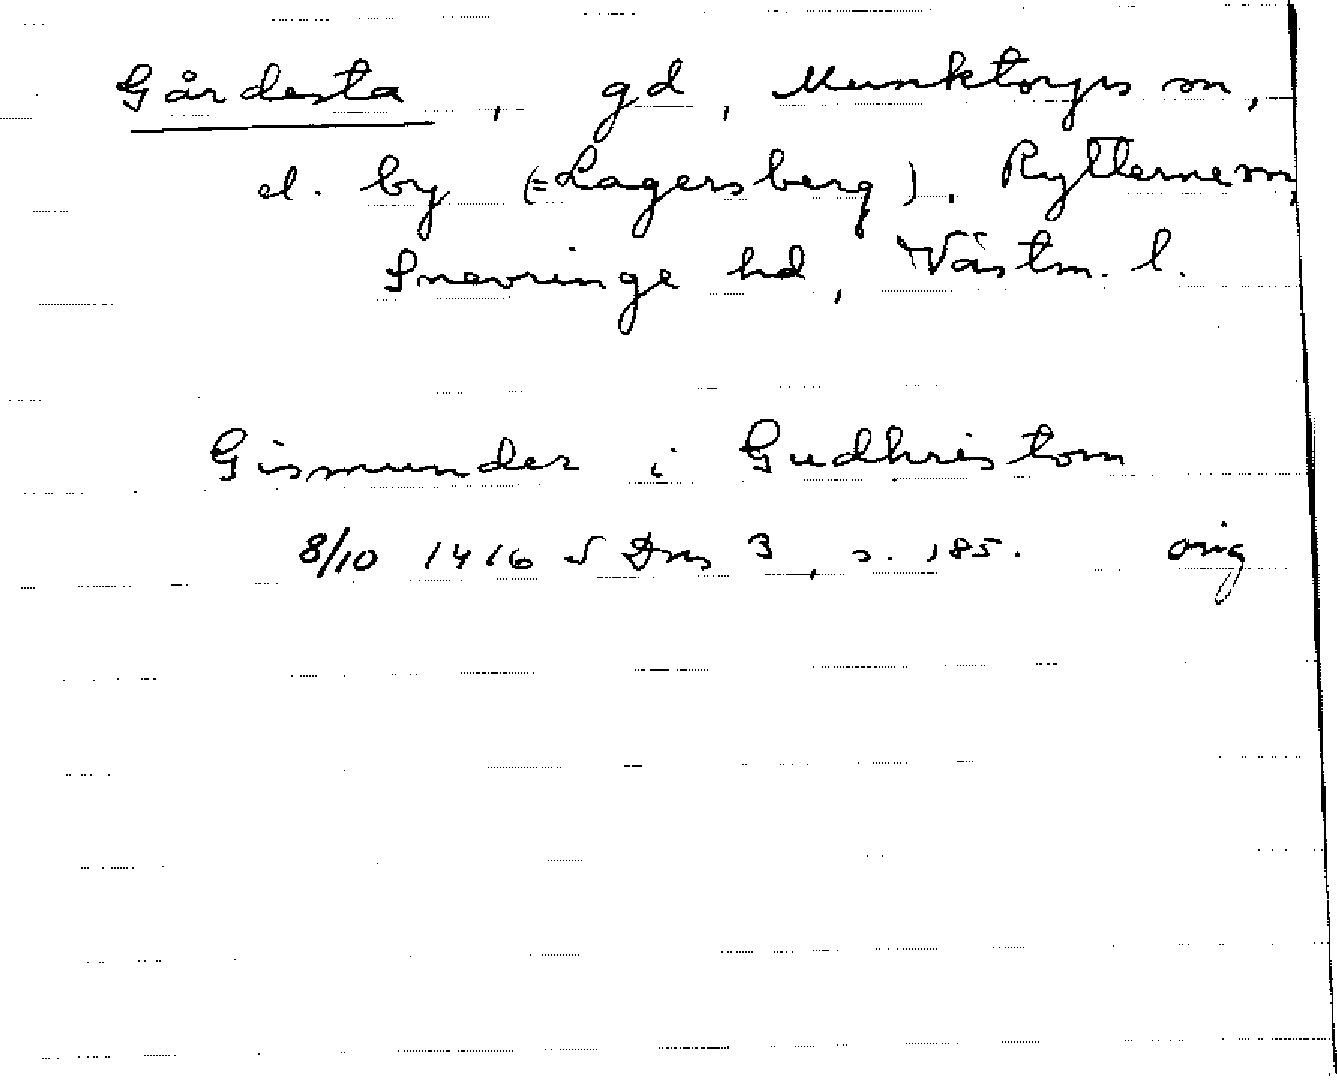 Gårdesta, gd, Munktorps sn,
el. by (=Lagersberg). Rytterne sn,
Snevringe hd, Västm. l.
Gismunder i Gudhristom
8/10 1416 SDns 3, s. 185. orig